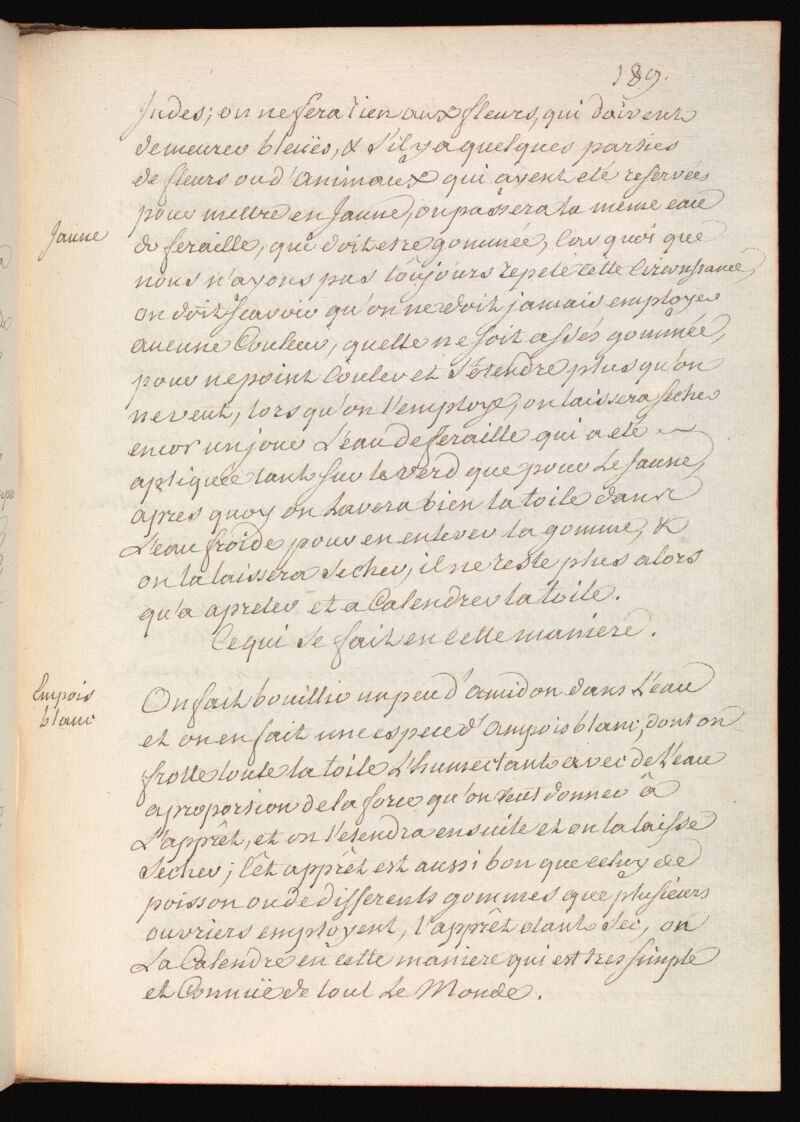 189.
Indes; on ne fera rien aux fleurs, qui doivent
demeurer bleües, & s'il y a quelques parties
de fleurs ou d'animaux qui ayent eté reservées
Jaune
pour mettre en Jaune, on passera la même eau
de feraille, qui doit etre gommée, Car quoi que
nous n'ayons pas toûjours repeté cette Circonstance,
on doit scavoir qu'on ne doit jamais employer
aucune Couleur, quelle ne soit assés gommée,
pour ne point Couler et s'étendre plus qu'on
ne veut, lorsqu'on l'employe, on laissera secher
encor un jour L'eau de feraille qui a eté
apliquée tant sur le verd que pour Le Jaune,
apres quoy on Lavera bien la toile dans
L'eau froide pour en enlever la gomme, &
on la laissera secher, il ne reste plus alors
qu'a apreter et a Calendrer la toile.
Ce qui se fait en cette maniere.
Empois
blanc
On fait bouillir un peu d'amidon dans L'eau
et on en fait une espece d'ampois blanc, dont on
frotte toute la toile L'humectant avec de L'eau
a proporsion de la force qu'on veut donner à
L'apprêt, et on l'etendra ensuite et on la laisse
secher; Cêt apprêt est aussi bon que celuy de
poisson ou de differents gommes que plusieurs
ouvriers employent, l'apprêt etant sec, on
La Calendre en cette maniere qui est tres simple
et Connüe de tout Le Monde.